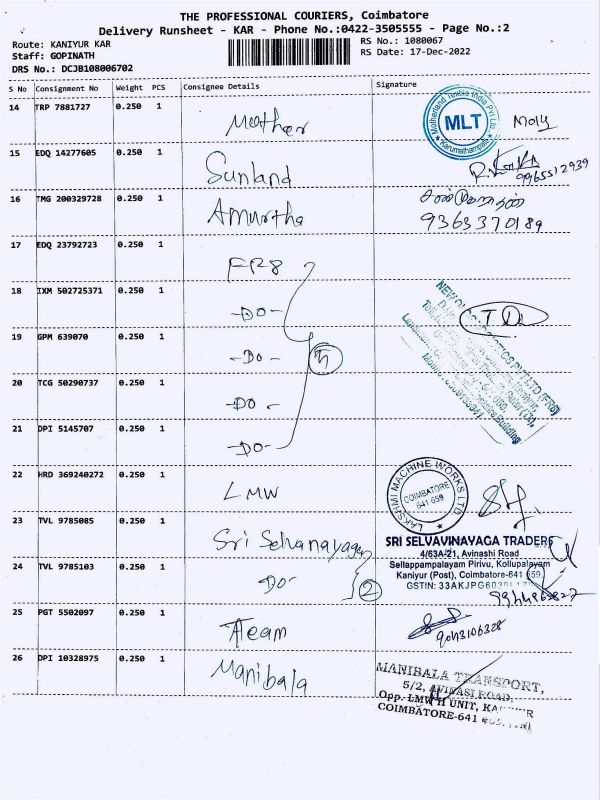 THE PROFESSIONAL COURIERS, Coimbatore
Delivery Runsheet - KAR - Phone No.:0422-3505555 - Page No.:2
Route: KANIYUR KAR
RS No.: 1080067
Staff: GOPINATH
RS Date: 17-Dec-2022
DRS No.: DCJB108006702
S No Consignment No Weight PCS Consignee Details Signature
14 TRP 7881727 0.250 1 Mother
Motherland Textile India Pvt Ltd.
MLT
Karumathampatti
Moly
15 EDQ 14277605 0.250 1 Sunland 9965512939
16 TMG 200329728 0.250 1 Amurtha
9363370189
17 EDQ 23792723 0.250 1 FR8
18 IXM 502725371 0.250 1 -DO-
19 GPM 639070 0.250 1 -DO- 5
20 TCG 50290737 0.250 1 -DO-
21 DPI 5145707 0.250 1 -DO-
22 HRD 369240272 0.250 1 LMW
LAKSHMI MACHINE WORKS LTD.
COIMBATORE
641 659
23 TVL 9785085 0.250 1 Sri Selvanayagar
SRI SELVAVINAYAGA TRADERS
4/63A-21, Avinashi Road
24 TVL 9785103 0.250 1 DO 2
Sellappampalayam Pirivu, Kollupalayam
Kaniyur (Post), Coimbatore-641 659.
25 PGT 5502097 0.250 1 Ateam 9043106328
26 DPI 10328975 0.250 1 Manibala
MANIBALA TRANSPORT,
5/2, AVINASI ROAD,
Opp. LMW II UNIT,
COIMBATORE-641